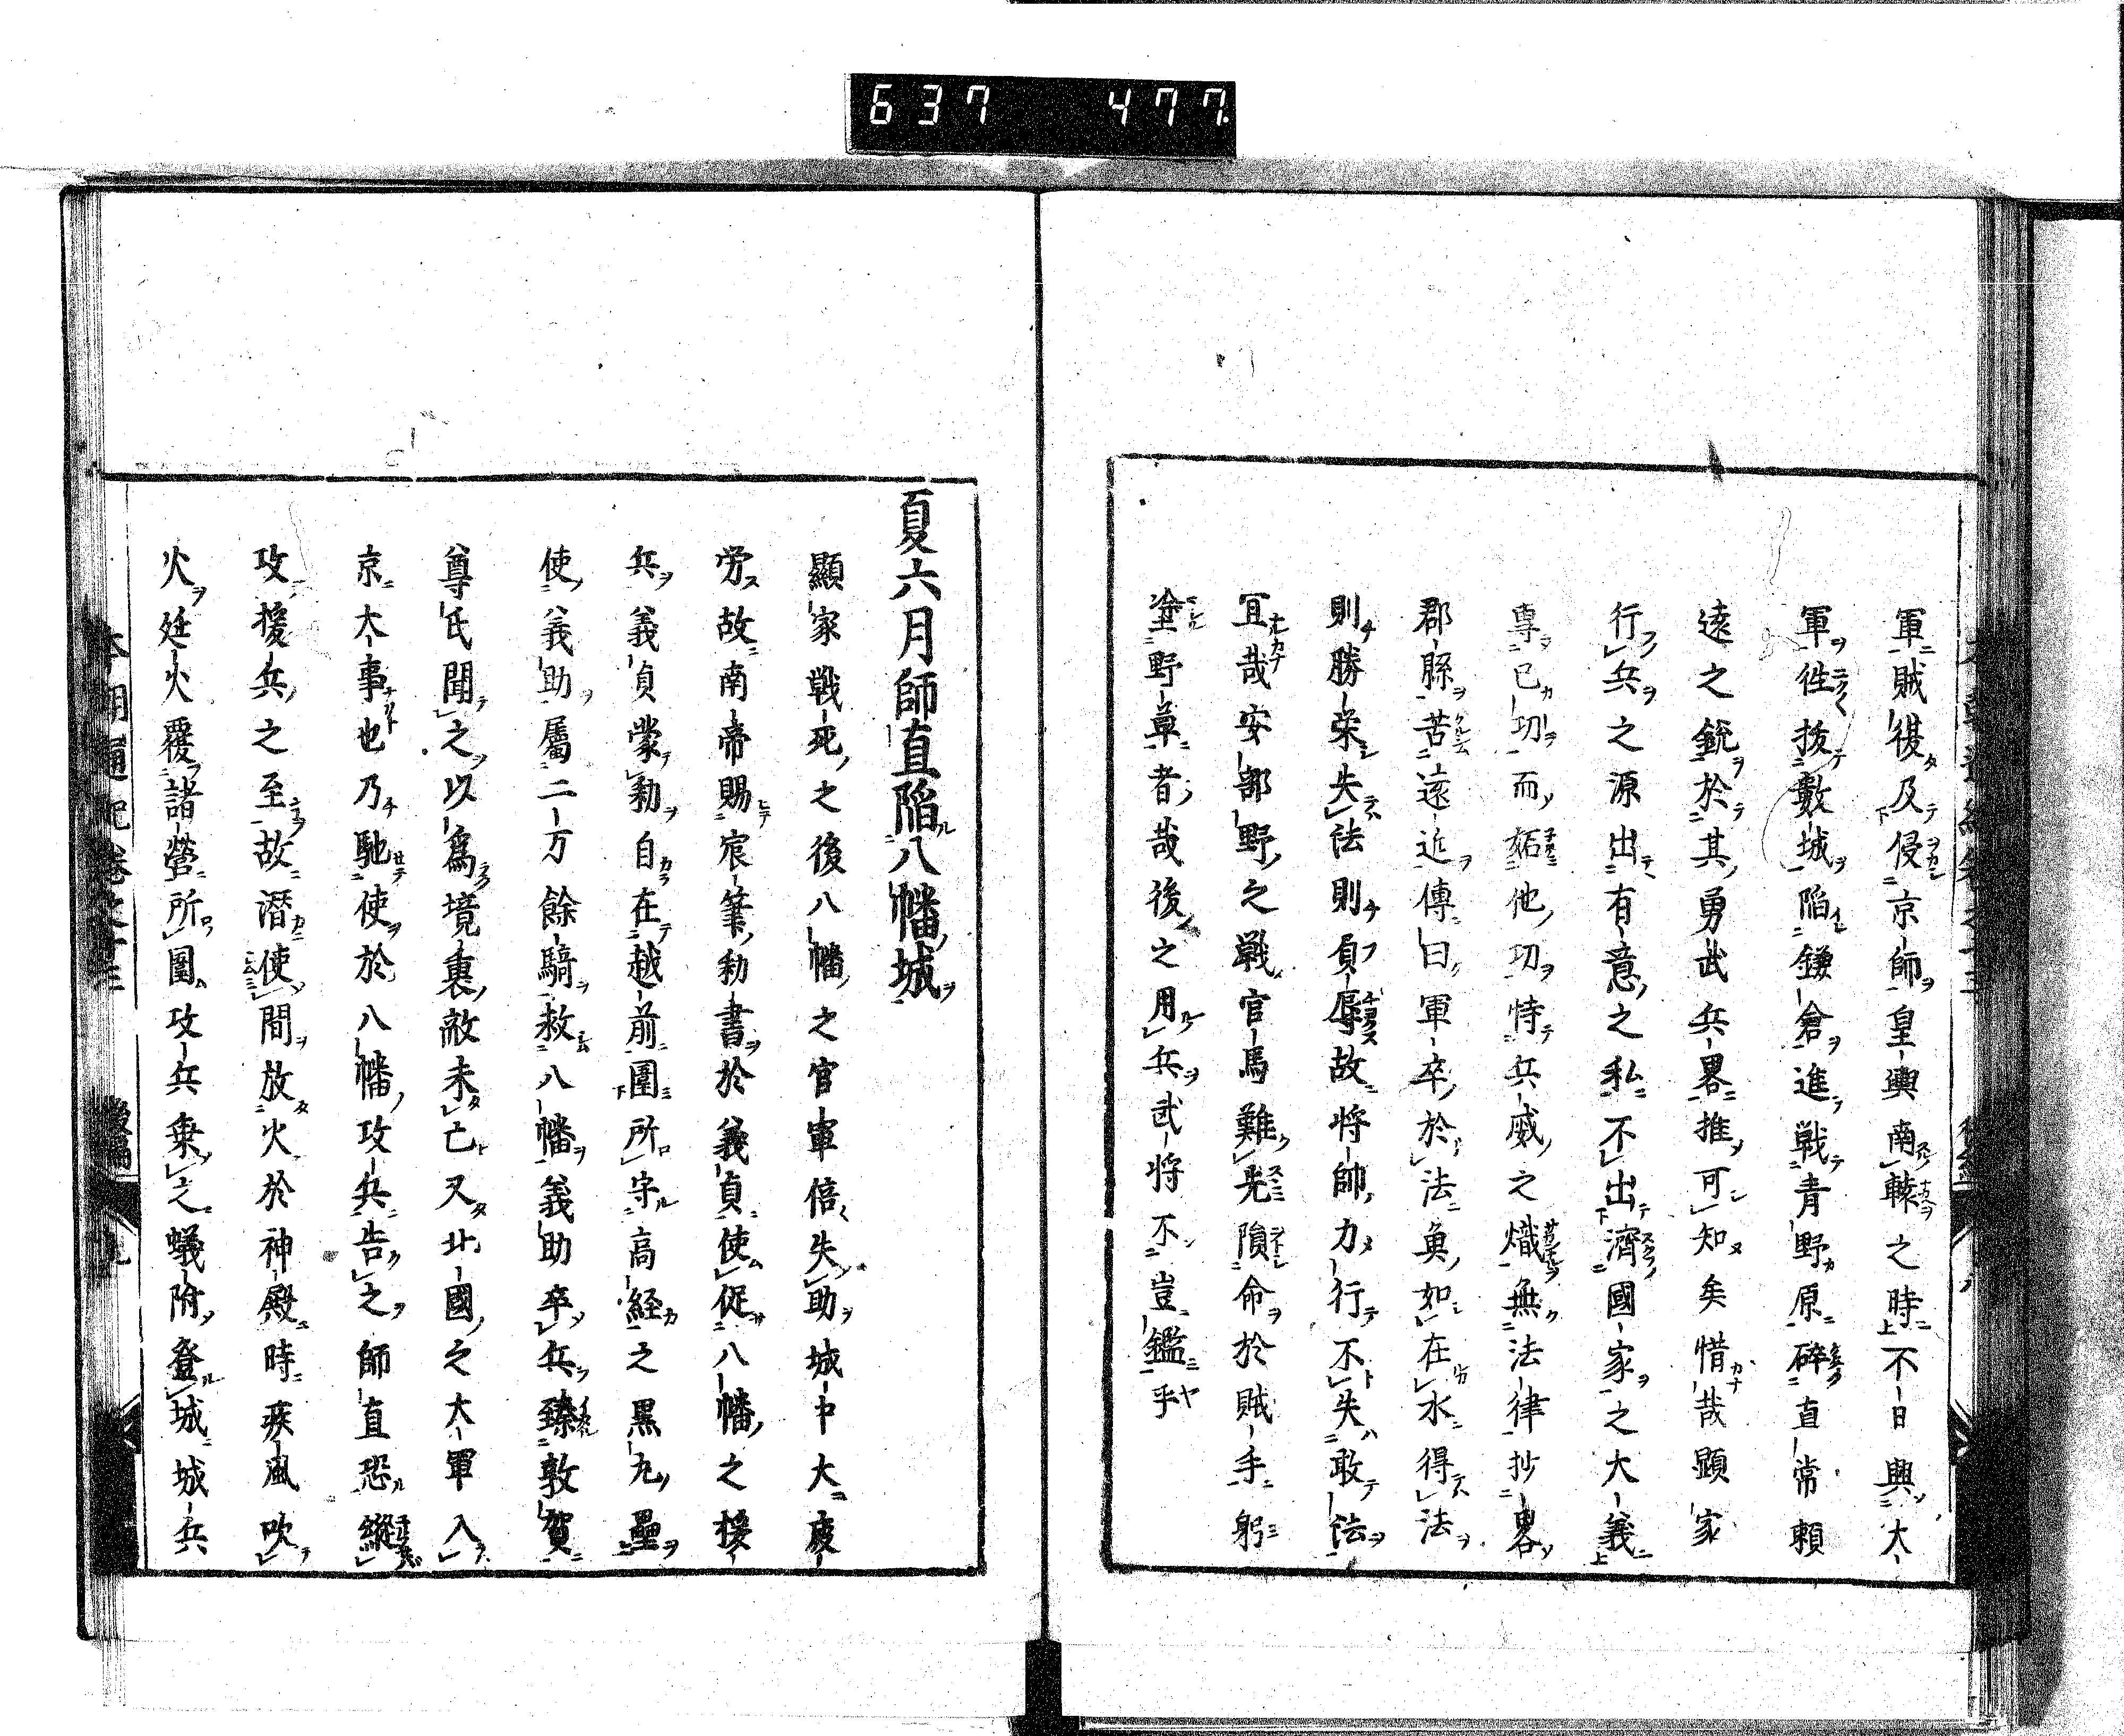 637 477
軍賊復及侵京師皇輿南轅之時不日與大
軍徃拔數城陷鎌倉進戰青野原碎直常賴
遠之銳於其勇武兵畧推可知矣惜哉顯家
行兵之源出有意之私不出濟國家之大義
專已功而妬他功恃兵威之熾無法律抄畧
郡縣苦遠近傳曰軍卒於法魚如在水得法
則勝榮失法則負辱故將帥力行不失敢法
宜哉安部野之戰官馬難先隕命於賊手躬
塗野草者哉後之用兵武將不豈鑑乎
夏六月師直陷八幡城
顯家戰死之後八幡之官軍倍失助城中大疲
労故南帝賜宸筆勅書於義貞使促八幡之援
兵義貞蒙勅自在越前圍所守高経之黒丸壘
使義助屬二万餘騎救八幡義助卒兵臻敦賀
尊氏聞之以為境裏敵未亡又北國之大軍入
京大事也乃馳使於八幡攻兵告之師直恐縱
攻援兵之至故潜使間放火於神殿時疾風吹
火廷火覆諸營所圍攻兵乗之蟻附登城城兵
本朝通紀卷之十三 後編 九